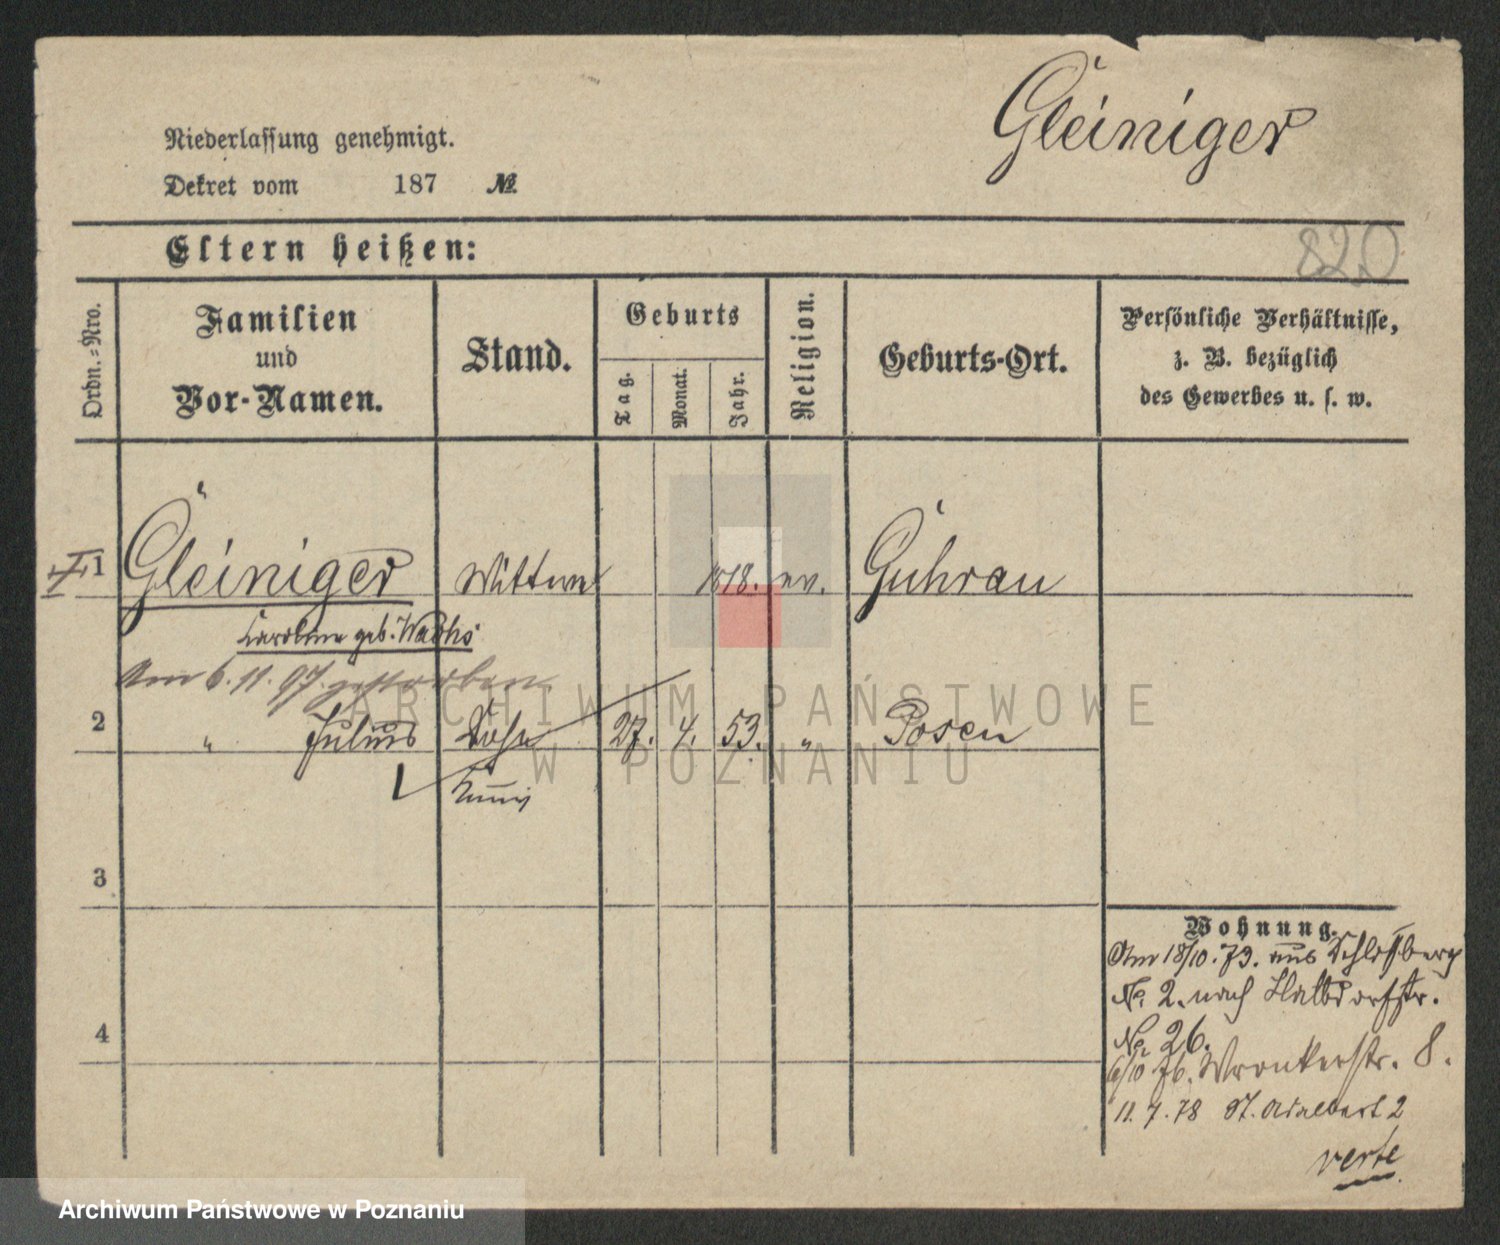 Gleiniger
Niederlassung genehmigt.
Dekret vom 187 №
Eltern heißen:
820
Ordn.-Nro.
Familien
und
Vor-Namen.
Stand.
Geburts
Tag.
Monat.
Jahr.
Religion.
Geburts-Ort.
Persönliche Verhältnisse,
z. B. bezüglich
des Gewerbes u. s. w.
1 Gleiniger Wittwe 1818. ev. Guhrau
Caroline geb. Wachs
Am 6.11.97. gestorben
2 " Julius Sohn 27. 4. 53. " Posen
3
4
Wohnung.
Am 18/10.73. aus Schloßberg
No. 2. nach Halbdorfstr.
No. 26.
6/10 76. Wronkerstr. 8.
11.7.78 St. Adalbert 2
verte
ARCHIWUM PAŃSTWOWE
W POZNANIU
Archiwum Państwowe w Poznaniu